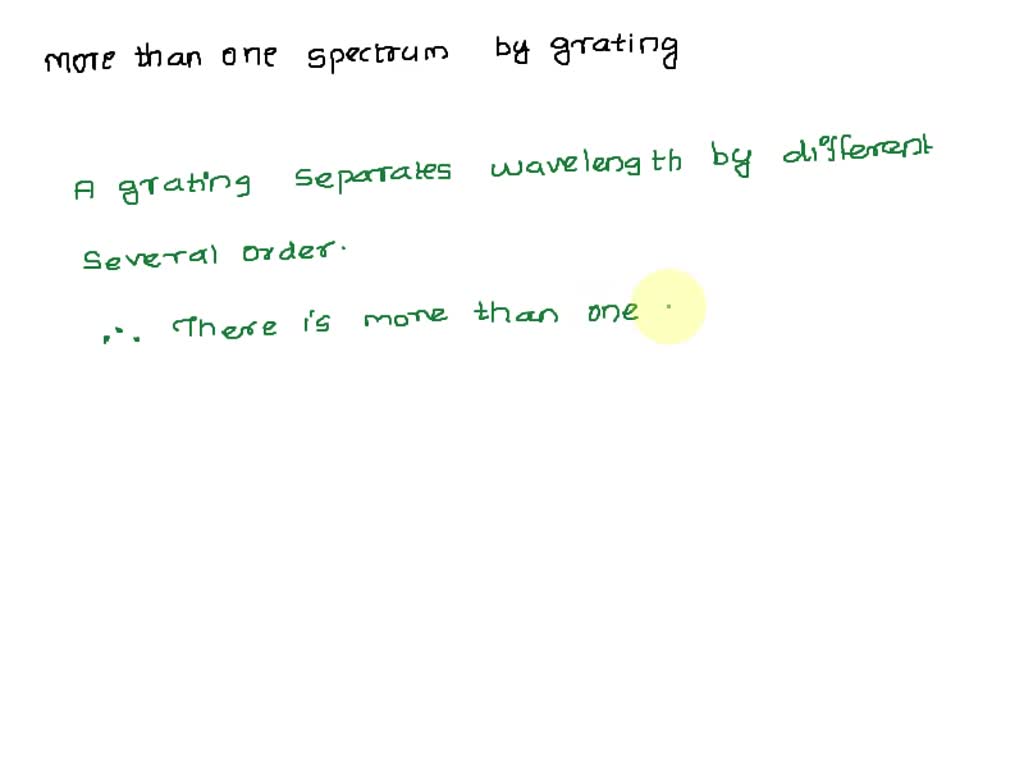 more than one spectrum by grating
A grating separates wavelength by different
several order.
∴ There is more than one